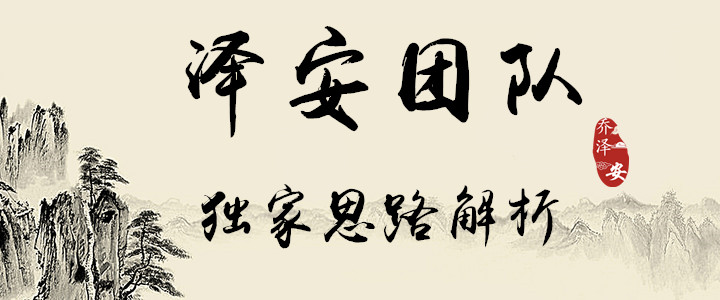 泽安团队
乔泽安
独家思路解析